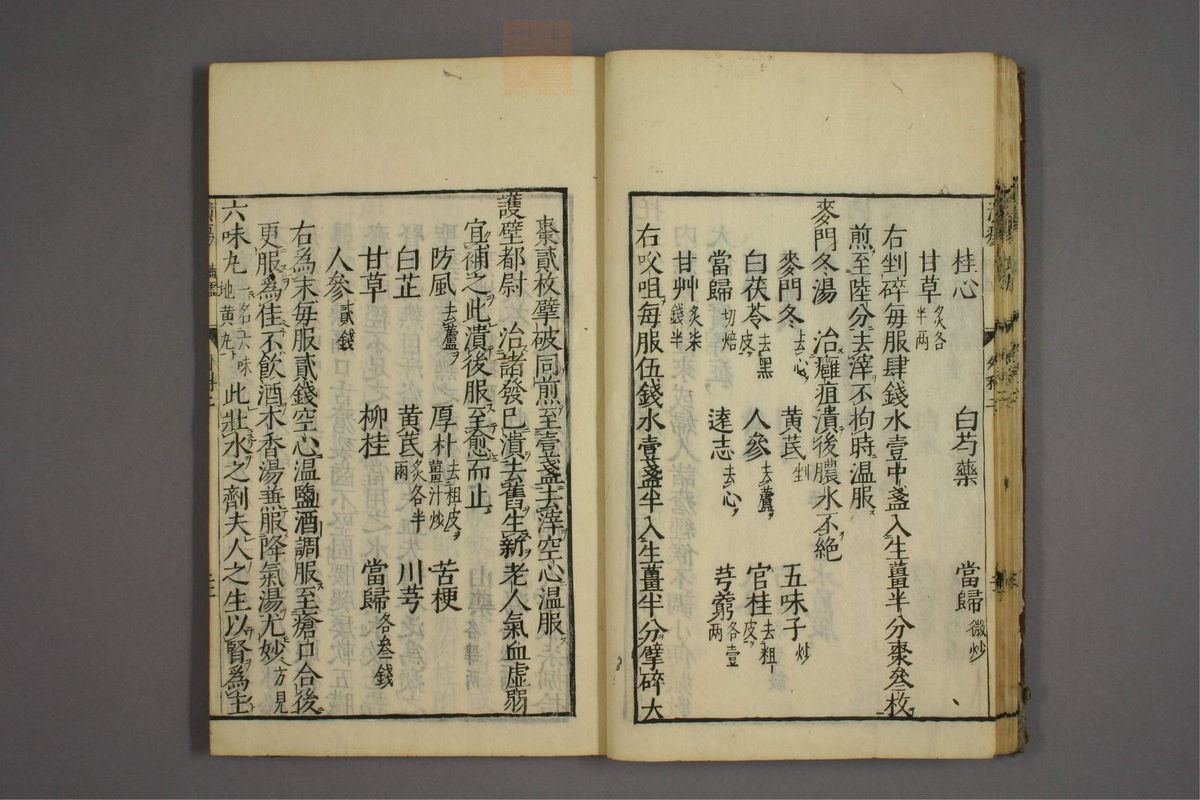 桂心 白芍藥 當歸微炒
甘草炙各半两
右剉碎每服肆錢水壹中盞入生薑半分棗叄枚
煎至陸分去滓不拘時温服
麥門冬湯 治癰疽潰後膿水不絶
麥門冬去心 黄芪剉 五味子炒
白茯苓去黑皮 人參去蘆 官桂去粗皮
當歸切焙 逺志去心 芎藭各壹两
甘艸炙柒錢半
右㕮咀每服伍錢水壹盞半入生薑半分擘碎大
棗貳枚擘破同煎至壹盞去滓空心温服
護壁都尉 治諸發已潰去舊生新老人氣血虚弱
宜補之此潰後服至愈而止
防風去蘆 厚朴去粗皮薑汁炒 苦梗
白芷 黄芪炙各半兩 川芎
甘草 柳桂 當歸各叄錢
人參貳錢
右為末每服貳錢空心温鹽酒調服至瘡口合後
更服為佳不飲酒木香湯兼服降氣湯尤妙方見
六味丸一名六味地黄丸 此壮水之劑夫人之生以腎為主